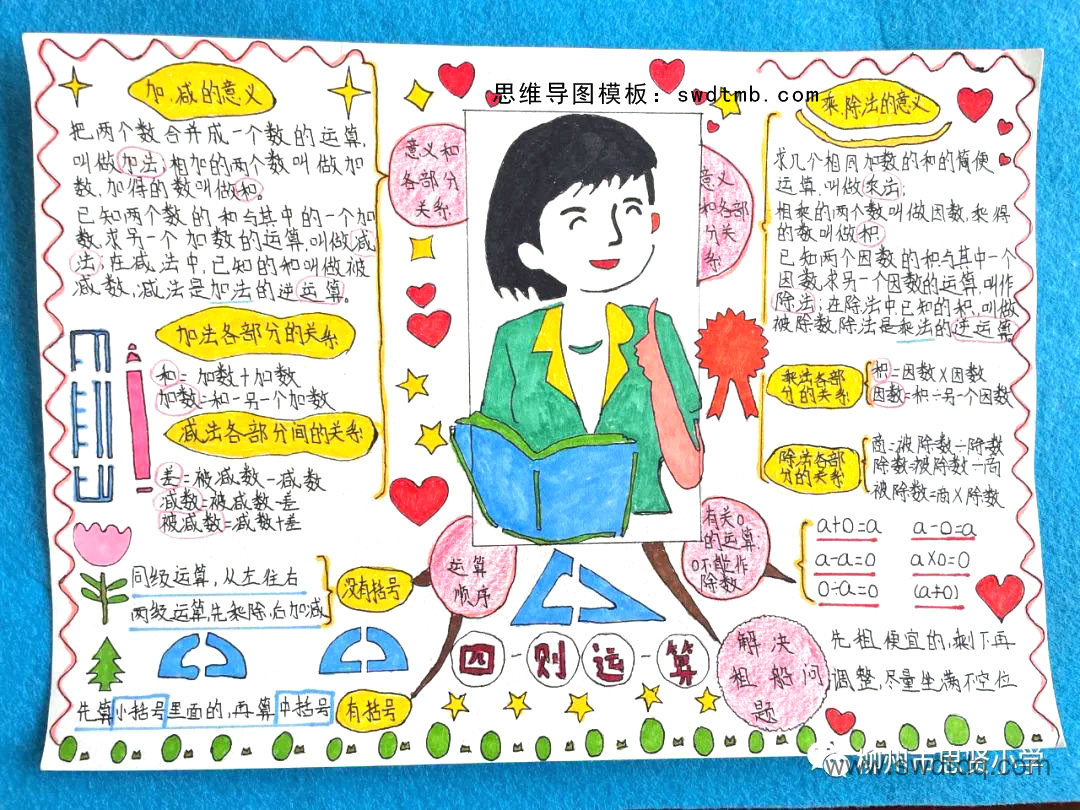 思维导图模板：swdtmb.com
加.减的意义
把两个数合并成一个数的运算,
叫做加法;相加的两个数叫做加
数,加得的数叫做和。
已知两个数的和与其中的一个加
数,求另一个加数的运算,叫做减
法,在减法中,已知的和叫做被
减数,减法是加法的逆运算。
加法各部分的关系
和=加数+加数
加数=和-另一个加数
减法各部分间的关系
差=被减数-减数
减数=被减数-差
被减数=减数+差
意义和
各部分
关系
同级运算,从左往右
两级运算,先乘除,后加减
没有括号
先算小括号里面的,再算中括号
有括号
运算
顺序
四-则运-算
乘.除法的意义
求几个相同加数的和的简便
运算,叫做乘法;
相乘的两个数叫做因数,乘得
的数叫做积
已知两个因数的积与其中一个
因数,求另一个因数的运算,叫作
除法;在除法中,已知的积,叫做
被除数,除法是乘法的逆运算
意义
和各部
分关
系
乘法各部
分的关系
积=因数×因数
因数=积÷另一个因数
除法各部
分的关系
商=被除数-除数
除数=被除数-商
被除数=商×除数
有关0
的运算
0不能作
除数
a+0=a
a-0=a
a-a=0
a×0=0
0÷a=0
(a≠0)
解决
租船问
题
先租便宜的,剩下再
调整,尽量坐满不空位
柳州市思贤小学
www.swdtdq.com